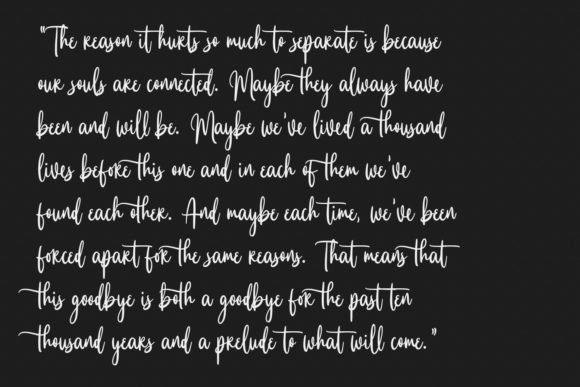 "The reason it hurts so much to separate is because
our souls are connected. Maybe they always have
been and will be. Maybe we've lived a thousand
lives before this one and in each of them we've
found each other. And maybe each time, we've been
forced apart for the same reasons. That means that
this goodbye is both a goodbye for the past ten
thousand years and a prelude to what will come."